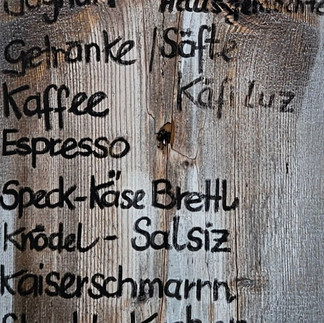 Joghurt Hausgemachte
Getränke / Säfte
Kaffee Käfi Luz
Espresso
Speck-Käse Brettl
Knödel - Salsiz
Kaiserschmarrn